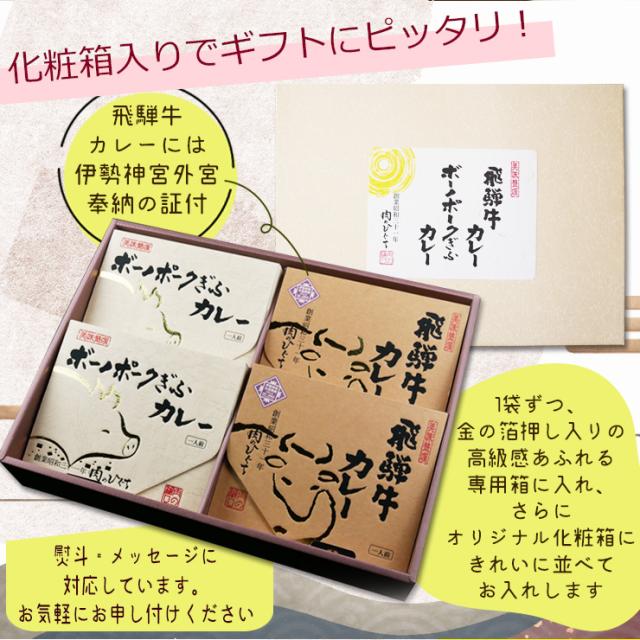 化粧箱入りでギフトにピッタリ!
飛騨牛
カレーには
伊勢神宮外宮
奉納の証付
美味整選
飛騨牛カレー
ボーノポークぎふカレー
創業昭和三十一年
肉のひぐち
ボーノポークぎふ
カレー
一人前
飛騨牛
カレー
創業昭和三十一年
肉のひぐち
ボーノポークぎふ
カレー
一人前
創業昭和三十一年
肉のひぐち
飛騨牛
カレー
創業昭和三十一年
肉のひぐち
一人前
1袋ずつ、
金の箔押し入りの
高級感あふれる
専用箱に入れ、
さらに
オリジナル化粧箱に
きれいに並べて
お入れします
熨斗・メッセージに
対応しています。
お気軽にお申し付けください